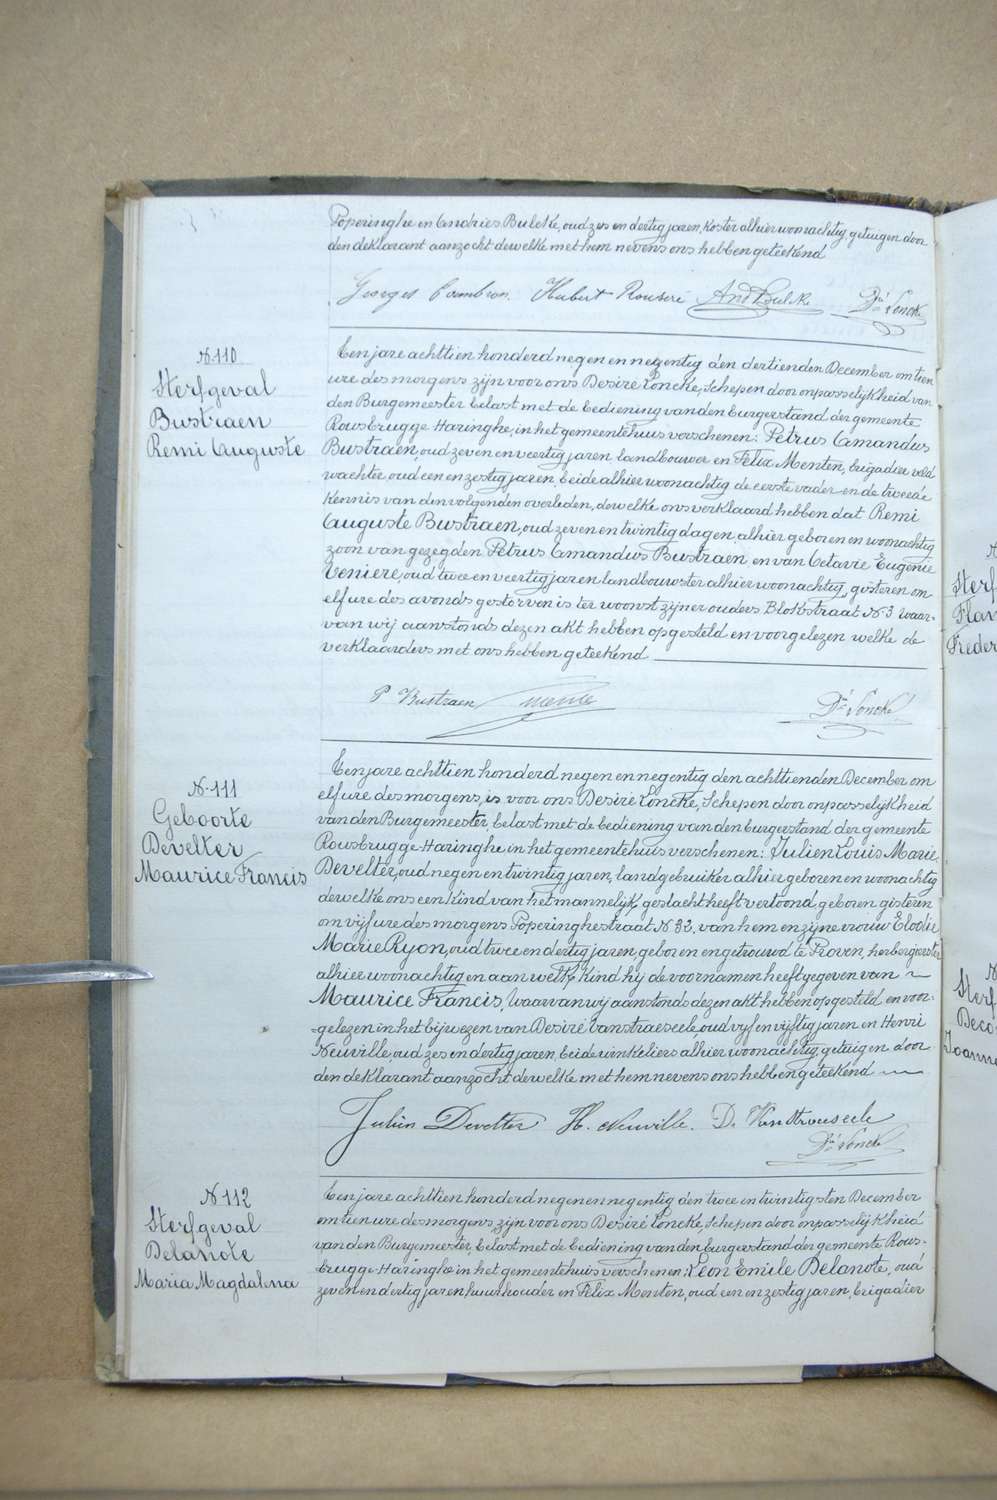 Poperinghe en Andries Bulcke, oud zes en dertig jaren, Koster alhier woonachtig getuigen door
den deklarant aanzocht dewelke met hem nevens ons hebben geteekend
Georges Cambron. Hubert Rouseré And Bulcke Dré Loncke
N. 110
Sterfgeval
Bustraen
Remi Auguste
Een jare achttien honderd negen en negentig den dertienden December om tien
ure des morgens zijn voor ons Desiré Loncke, Schepen door onpasselijkheid van
den Burgemeester belast met de bediening van den burgerstand der gemeente
Rousbrugge Haringhe, in het gemeentehuis verschenen: Petrus Amandus
Bustraen, oud zeven en veertig jaren landbouwer en Felix Menten, brigadier veld
wachter, oud een en zestig jaren, beide alhier woonachtig de eerste vader en de tweede
kennis van den volgenden overleden, dewelke ons verklaard hebben dat Remi
Auguste Bustraen, oud zeven en twintig dagen, alhier geboren en woonachtig
zoon van gezegden Petrus Amandus Bustraen en van Octavie Eugenie
Veniere, oud twee en veertig jaren landbouwster alhier woonachtig, gisteren om
elf ure des avonds gestorven is ter woonst zijner ouders Blokstraat N. 3 Waar-
van wij aanstonds dezen akt hebben opgesteld en voorgelezen welke de
verklaarders met ons hebben geteekend
P Bustraen Menten Dré Loncke
N. 111
Geboorte
Develter
Maurice Francis
Een jare achttien honderd negen en negentig den achttienden December om
elf ure des morgens, is voor ons Desiré Loncke, Schepen door onpasselijkheid
van den Burgemeester, belast met de bediening van den burgerstand der gemeente
Rousbrugge Haringhe in het gemeentehuis verschenen: Julien Louis Marie
Develter, oud negen en twintig jaren, landgebruiker alhier geboren en woonachtig
dewelke ons een kind van het mannelijk geslacht heeft vertoond, geboren gisteren
om vijf ure des morgens Poperinghestraat N. 33, van hem en zijne vrouw Elodie
Marie Ryon, oud twee en dertig jaren, geboren en getrouwd te Proven, herbergierster
alhier woonachtig en aan welk kind hij de voornamen heeft gegeven van
Maurice Francis, Waarvan wij aanstonds dezen akt hebben opgesteld en voor-
-gelezen in het bijwezen van Desiré Vanstraeseele, oud vijf en vijftig jaren en Henri
Neuville, oud zes en dertig jaren, beide winkeliers alhier woonachtig, getuigen door
den deklarant aanzocht dewelke met hem nevens ons hebben geteekend
Julien Develter H. Neuville. D. Vanstraeseele
Dré Loncke
N. 112
Sterfgeval
Delanote
Maria Magdalena
Een jare achttien honderd negen en negentig den twee en twintigsten December
om tien ure des morgens, zijn voor ons Desiré Loncke, Schepen door onpasselijkheid
van den Burgemeester, belast met de bediening van den burgerstand der gemeente Rous-
brugge Haringhe in het gemeentehuis verschenen: Leon Emile Delanote, oud
zeven en dertig jaren, huurhouder en Felix Menten, oud een en zestig jaren, brigadier
Sterf
Flan
Freder
Sterf
Deco
Joanne